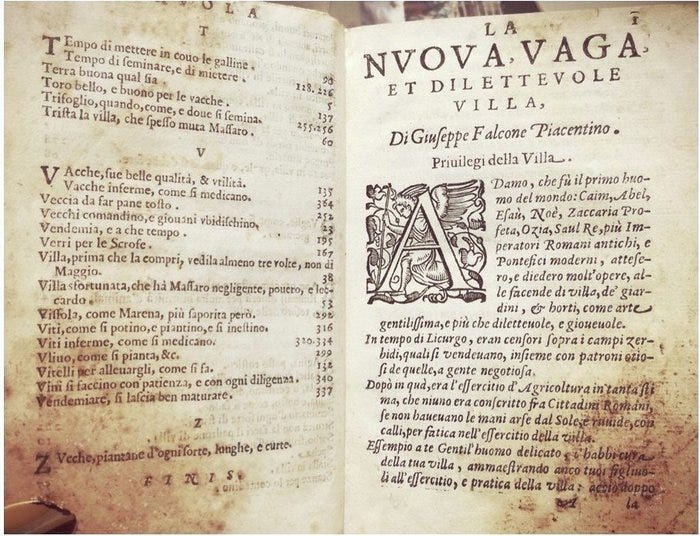 VOLA
T
TEmpo di mettere in couo le galline.
Tempo di seminare, e di mietere. 90
Terra buona qual sia. 128.226
Toro bello, e buono per le vacche. 5
Trifoglio, quando, come, e doue si semina. 137
Trista la villa, che spesso muta Massaro. 255.256
60
V
VAcche, sue belle qualità, & vtilità.
Vacche inferme, come si medicano. 135
Veccia da far pane tosto. 364
Vecchi comandino, e giouani vbidischino. 252
Vendemia, e a che tempo. 23
Verri per le Scrofe. 195
Villa, prima che la compri, vedila almeno tre volte, non di 167
Maggio. 38
Villa sfortunata, che hà Massaro negligente, pouero, e lec-
cardo. 53
Vissola, come Marena, più saporita però. 292
Viti, come si potino, e piantino, e si inestino. 316
Viti inferme, come si medicano. 320.334
Vliuo, come si pianta, &c. 299
Vitelli per alleuargli, come si fa. 132
Vini si faccino con patienza, e con ogni diligenza. 340
Vendemiare, si lascia ben maturare. 337
Z
ZVcche, piantane d'ogni sorte, lunghe, e curte.
FINIS.
1
LA
NVOVA, VAGA,
ET DILETTEVOLE
VILLA,
Di Giuseppe Falcone Piacentino.
Priuilegi della Villa.
ADamo, che fù il primo huo-
mo del mondo: Caim, Abel,
Esaù, Noè, Zaccaria Pro-
feta, Ozia, Saul Re, più Im-
peratori Romani antichi, e
Pontefici moderni, attese-
ro, e diedero molt'opere, al-
le facende di villa, de' giar-
dini, & horti, come arte
gentilissima, e più che diletteuole, e gioueuole.
In tempo di Licurgo, eran censori sopra i campi zer-
bidi, quali si vendeuano, insieme con patroni otio-
si de quelle, a gente negotiosa.
Dopò in quà, era l'essercitio d'Agricoltura in tanta sti
ma, che niuno era conscritto fra Cittadini Romani,
se non haueuano le mani arse dal Sole, e ruuide, con
calli, per fatica nell'essercitio della villa.
Essempio a te Gentil'huomo delicato, c'habbi cura
della tua villa, ammaestrando anco tuoi figliuo-
li all'essercitio, e pratica della villa: accio doppo
la